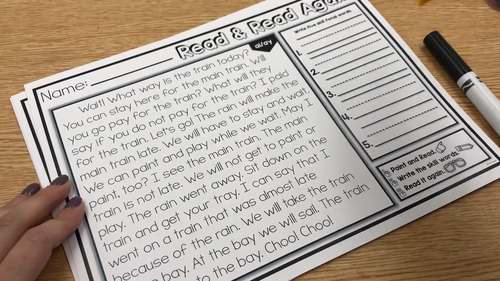 Read & Read Again
ai/ay
Name:
Wait! What way is the train today?
You can stay here for the main train. Will
you go pay for the train? What will they
say if you do not pay for the train? I paid
for the train. Let's go! The rain will make the
main train late. We will have to stay and wait.
We can paint and play while we wait. May I
paint, too? I see the main train. The main
train is not late. We will not get to paint or
play. The rain went away. Sit down on the
train and get your tray. I can say that I
went on a train that was almost late
because of the rain. We will take the train
bay. At the bay we will sail. The train
to the bay. Choo! Choo!
Write five skill focus words.
2.
3.
4.
5.
Point and Read.
Write the skill words.
Read it again.